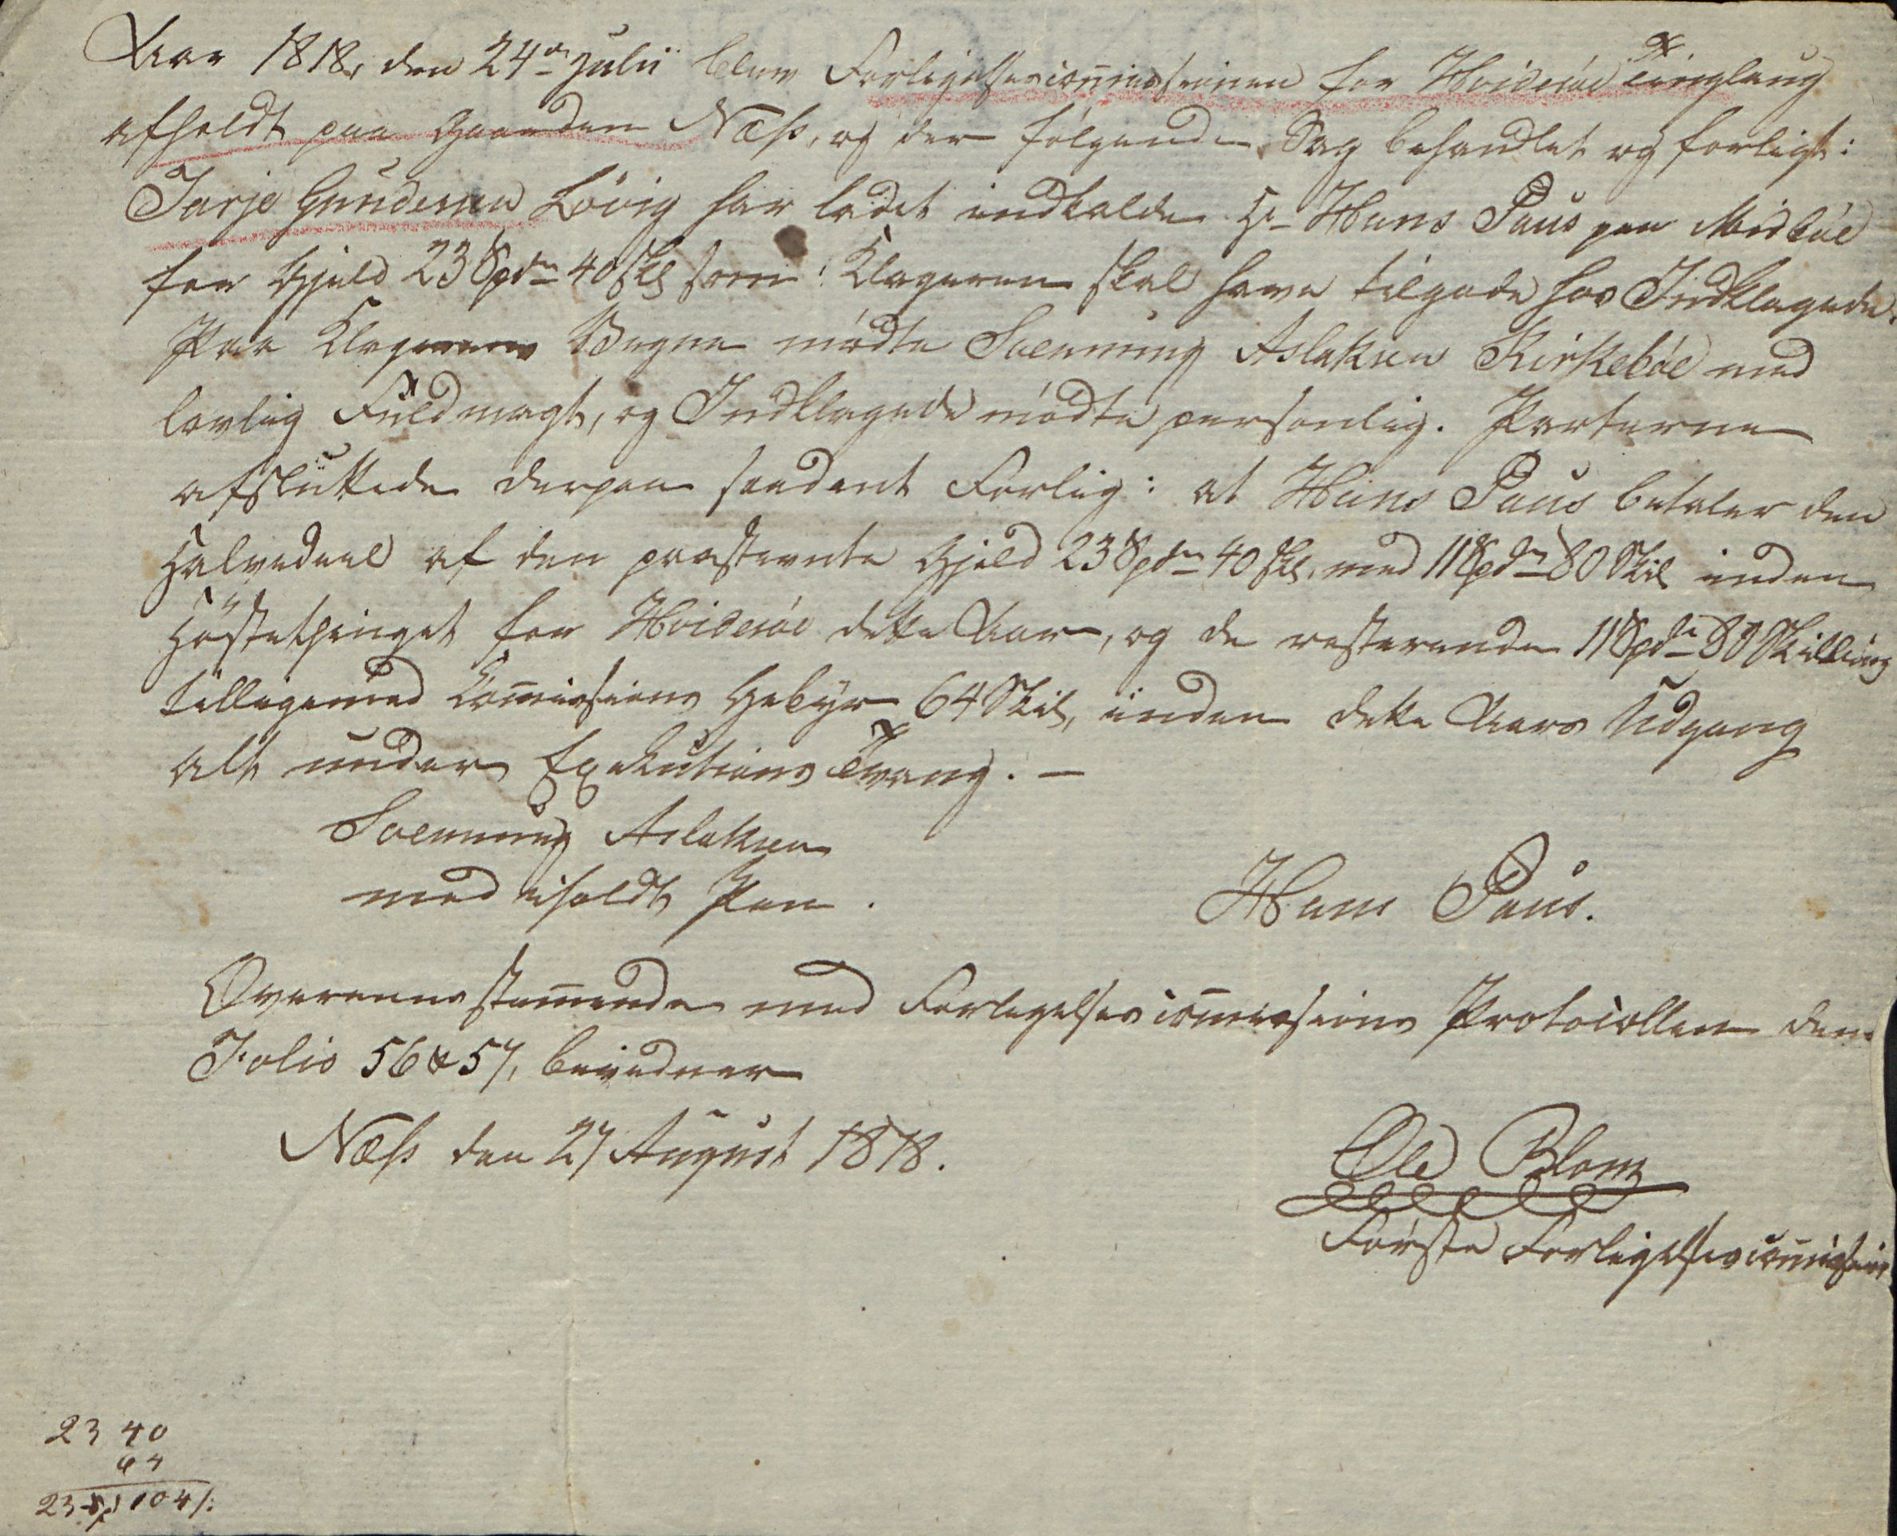 Aar 1818, den 24de Julii blev Forligelsescom̄issionen for Hvidesøe Tinglaug
afholdt paa Gaarden Næss, og der følgende Sag behandlet og forligt:
Tarje Gundersen Løvig har ladet indkalde Hr Hans Paus paa Midbøe
for Gjeld 23 Spdr 40 skl som Klageren skal have tilgode hos Indklagede.
Paa Klagerens Vegne mødte Svenning Aslaksen Kirkebøe med
lovlig Fuldmagt, og Indklagede mødte personlig. Parterne
afsluttede derpaa saadant Forlig: at Hans Paus betaler den
Halvedeel af den paastevnte Gjeld 23 Spdr 40 skl, med 11 Spdr 80 Skil inden
Høstethinget for Hvidesøe dette Aar, og de resterende 11 Spdr 80 Skilling
tilligemed Com̄issions Gebyr 64 Skil, inden dette Aars Udgang
alt under Executions Tvang. —
Svenning Aslaksen
med iholdt Pen.
Hans Paus.
Overeensstem̄ende med Forligelsescom̄issions Protocollen dens
Folio 56 & 57, bevidner
Næss den 27 August 1818.
Ole Blom
Første Forligelsescom̄issair
23 40
64
23 Spd 104 /: